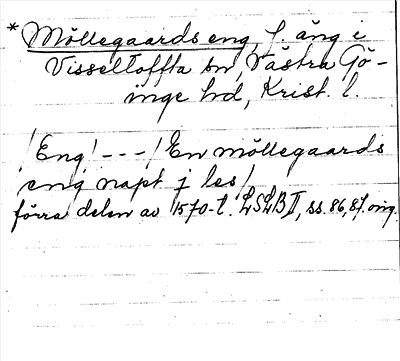 * Möllegaards eng, f. äng i
Visseltofta sn, Västra Gö-
inge hd, Krist. l.
/Eng/ - - - / En möllegaards
eng napt j les /
förra delen av 1570-t. LSLB II, ss. 86, 87. orig.